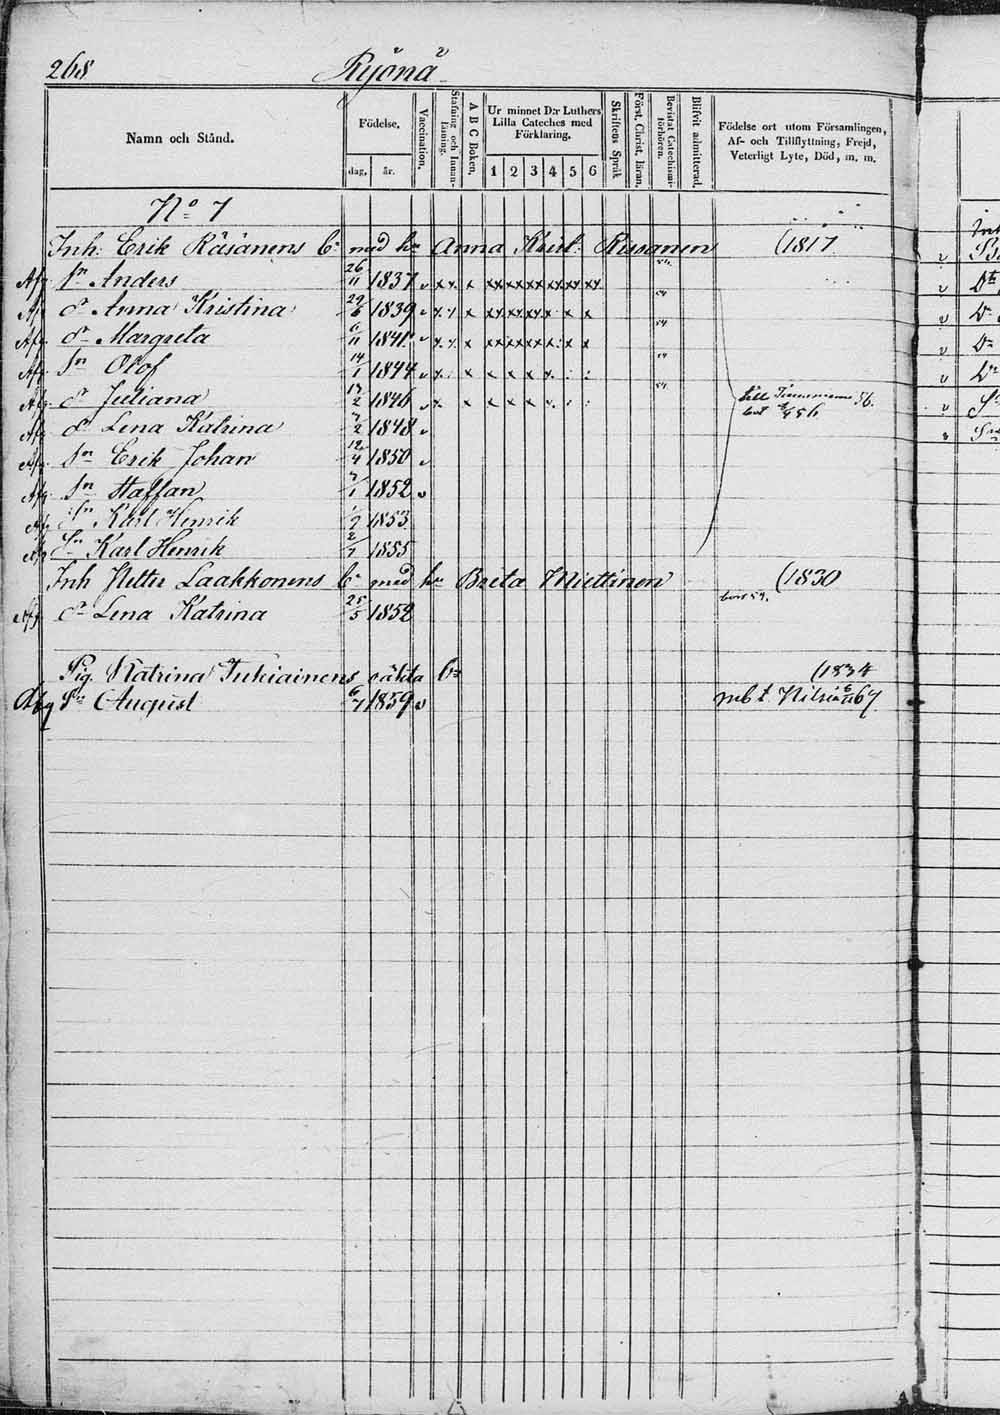 268 Ryönä
Namn och Stånd.
Födelse,
dag, år.
Vaccination,
Stafning och Innan-läsning.
A B C Boken,
Ur minnet D:r Luthers Lilla Cateches med Förklaring.
1 2 3 4 5 6
Skriftens Språk
Först. Christ. läran,
Bevistat Catechismi-förhören.
Blifvit admitterad,
Födelse ort utom Församlingen,
Af- och Tillflyttning, Frejd,
Veterligt Lyte, Död, m. m.
No 7
Inh: Erik Räsänens bn med hu Anna Krist: Rissanen (1817
Afg. Sn Anders 26/11 1837 v x x x xx xx xx xx xx xx 54.
Af dr Anna Kristina 29/6 1839 v x x x 54
Afg. dr Margreta 6/11 1841 v x x x 54
Afg. Sn Olof 14/1 1844 v x x x x x x 54
Afg. dr Juliana 13/2 1846 v x x x x x 54. till 56.
Afg. dr Lena Katrina 7/2 1848 v
Afg. Sn Erik Johan 12/4 1850 v
Afg. Sn Staffan 7/1 1852 v
Af. Sn Karl Henrik 1853
Afg Sn Karl Henrik 2/7 1855
Inh Petter Laakkonens bn med hu Brita Miettinen (1830
Afg. dr Lena Katrina 25/5 1852 bort 59.
Pig. Katrina Jukiainens oäkta bn (1834
Afg Sn August 6/7 1859 v mb t. Nilsiä 67